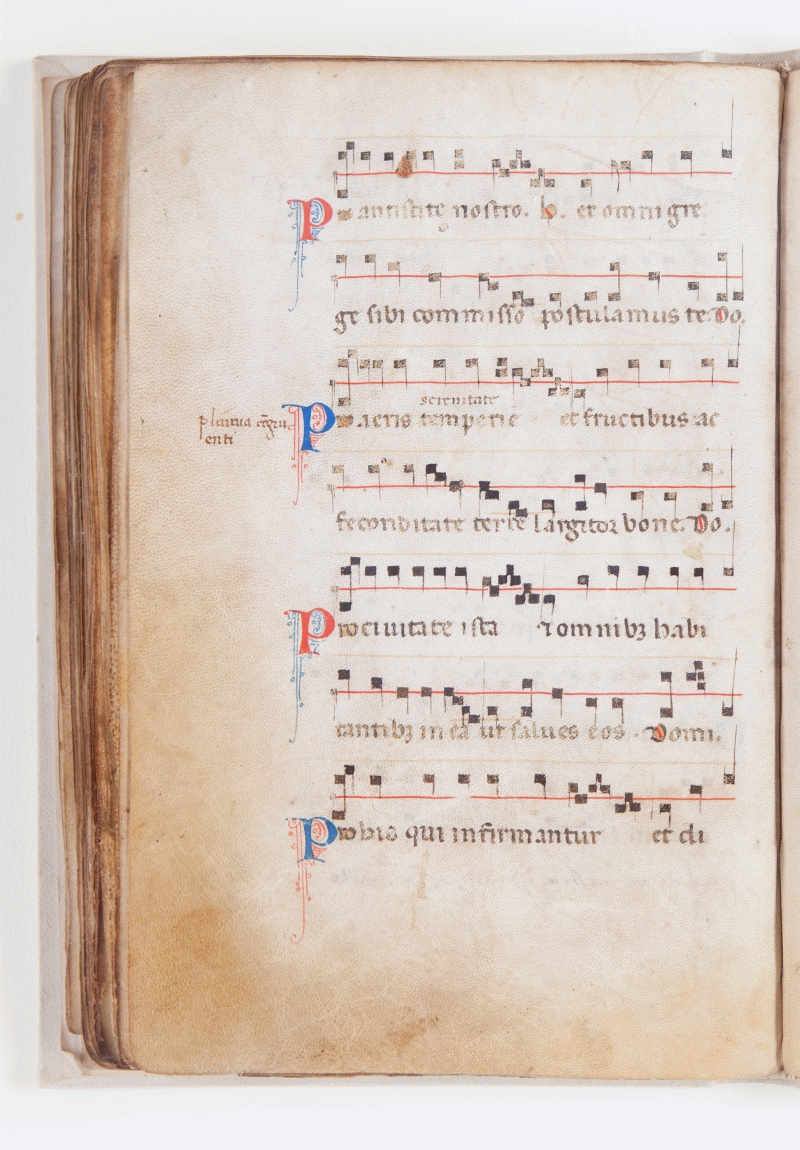 Pro antistite nostro. b. et omni gre
ge sibi commisso postulamus te. Do.
serenitate
Pro aeris temperie et fructibus ac
pluuia cõgru
enti
feconditate terre largitor bone. Do.
Pro ciuitate ista ⁊ omnibꝫ habi
tantibꝫ in ea ut salues eos. Domi.
Pro hiis qui infirmantur et di